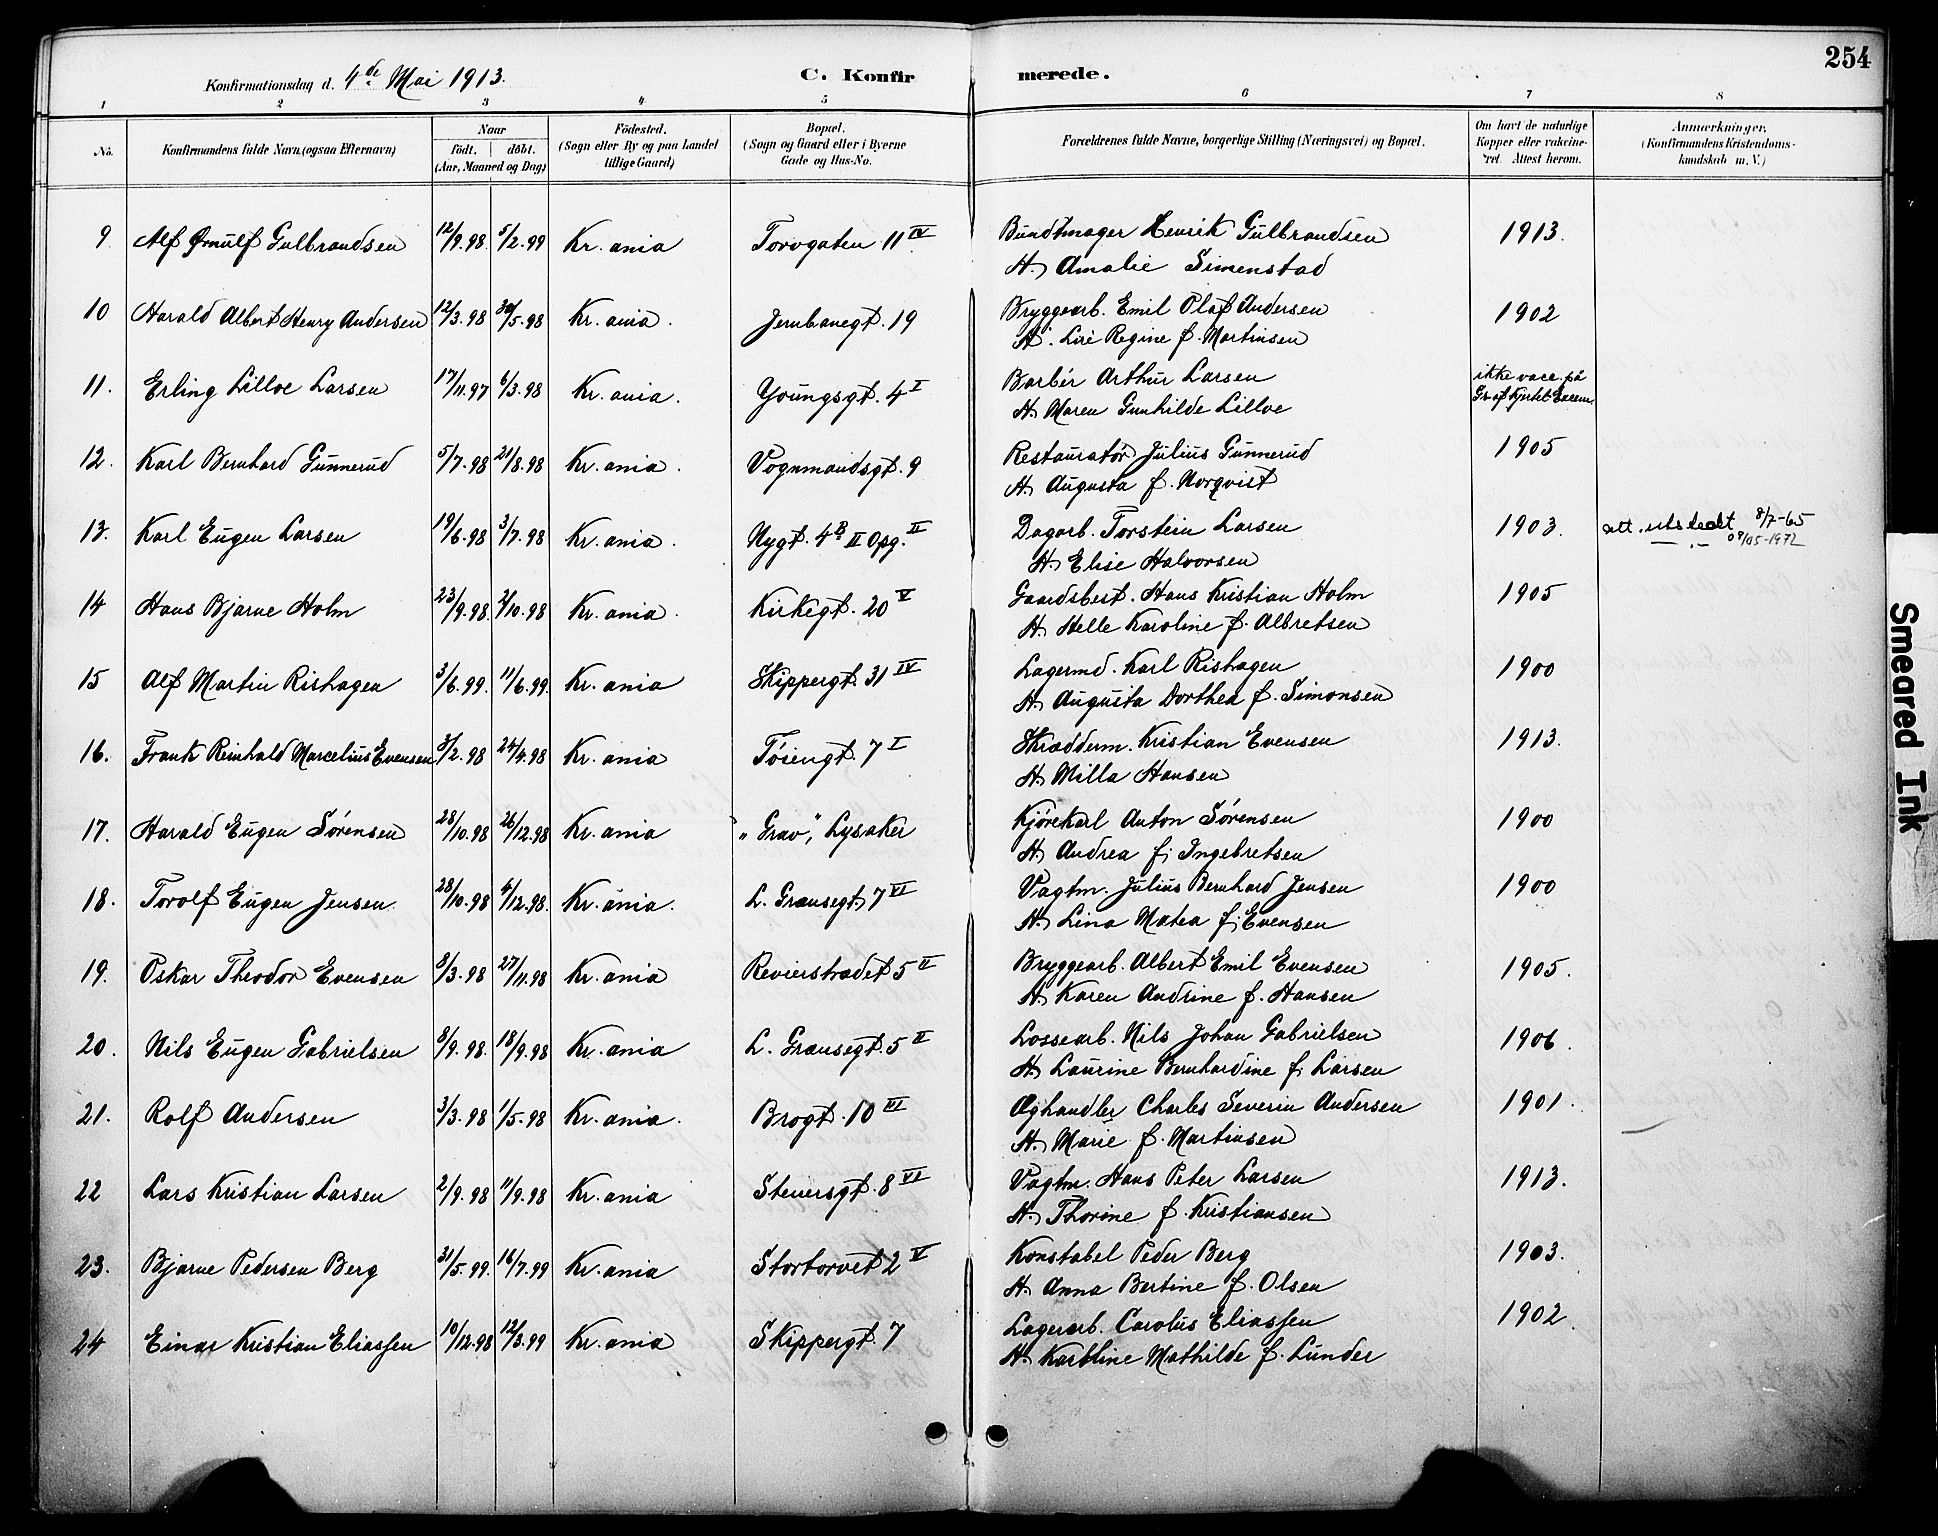 254
Konfirmationsdag d. 4de Mai 1913.
C. Konfirmerede.
1 2 3 4 5 6 7 8
No. Konfirmandens fulde Navn (ogsaa Efternavn) Naar født. døbt. (Aar, Maaned og Dag) Fødested. (Sogn eller By og paa Landet tillige Gaard) Bopæl. (Sogn og Gaard eller i Byerne Gade og Hus-No. Forældrenes fulde Navne, borgerlige Stilling (Næringsvei) og Bopæl. Om havt de naturlige Kopper eller vakcineret. Attest herom. Anmærkninger. (Konfirmandens Kristendomskundskab m. V.)
9 Alf Ørnulf Gulbrandsen 12/9.98 5/2.99 Kr.ania Torvgaten 11 IV Bundtmager Henrik Gulbrandsen 1913.
H. Amalie Simenstad
10 Harald Albert Henry Andersen 12/3.98 30/5.98 Kr.ania. Jernbanegt. 19 Bryggearb. Emil Olaf Andersen 1902
H. Liré Regine f. Martinsen
11. Erling Lilloe Larsen 17/11.97 6/3.98 Kr.ania. Youngsgt. 4 I Barbér Arthur Larsen ikke vacc. på
H. Maren Gunhilde Lilloe Gr. af Kjertel Exem.
12. Karl Bernhard Gunnerud 5/7.98 21/8.98 Kr.ania. Vognmandsgt. 9 Restauratør Julius Gunnerud 1905
H. Augusta f. Norqvist
13. Karl Eugen Larsen 19/6.98 3/7.98 Kr.ania. Nygt. 4 B II Opg. II Dagarb. Torstein Larsen 1903. att. utstedt 8/7-65
H. Elise Halvorsen — . — 09/05-1972
14 Hans Bjarne Holm 23/9.98. 2/10.98 Kr.ania. Kirkegt. 20 V Gaardsbest. Hans Kristian Holm 1905
H. Helle Karoline f. Albretsen
15 Alf Martin Rishagen 3/6.99. 11/6.99. Kr.ania Skippergt. 31 IV Lagermd. Karl Rishagen 1900
H. Augusta Dorthea f. Simonsen
16. Frank Reinhald Marcelius Evensen 3/2.98 24/4.98 Kr.ania Tøiengt. 7 I Skrædderm. Kristian Evensen 1913.
H. Milla Hansen
17. Harald Eugen Sørensen 28/10.98 26/12.98 Kr.ania „Grav", Lysaker Kjørekarl Anton Sørensen 1900
H. Andrea f. Ingebretsen
18. Torolf Eugen Jensen 28/10.98 4/12.98. Kr.ania. L. Grænsegt. 7 VI Vagtm. Julius Bernhard Jensen 1900
H. Lina Matea f. Evensen
19. Oskar Theodor Evensen 8/3.98 27/11.98 Kr.ania Revierstrædet 5 II Bryggearb. Albert Emil Evensen 1905.
H. Karen Andrine f. Hansen
20. Nils Eugen Gabrielsen 8/9.98. 18/9.98 Kr.ania L. Grænsegt. 5 II Lossearb. Nils Johan Gabrielsen 1906.
H. Laurine Bernhardine f. Larsen
21. Rolf Andersen 3/3.98 1/5.98 Kr.ania. Brogt. 10 III Æghandler Charles Severin Andersen 1901.
H. Marie f. Martinsen
22 Lars Kristian Larsen 2/9.98 11/9.98 Kr.ania Stenersgt. 8 VI Vagtm. Hans Peter Larsen 1913.
H. Thorine f. Kristiansen
23. Bjarne Pedersen Berg 31/5.99. 16/7.99 Kr.ania Stortorvet 2 V Konstabel Peder Berg 1903.
H. Anna Bertine f. Olsen
24 Einar Kristian Eliassen 10/12.98 12/3.99 Kr.ania Skippergt. 7 Lagerarb. Carolus Eliassen 1902.
H. Karoline Mathilde f. Lunder
Smeared Ink